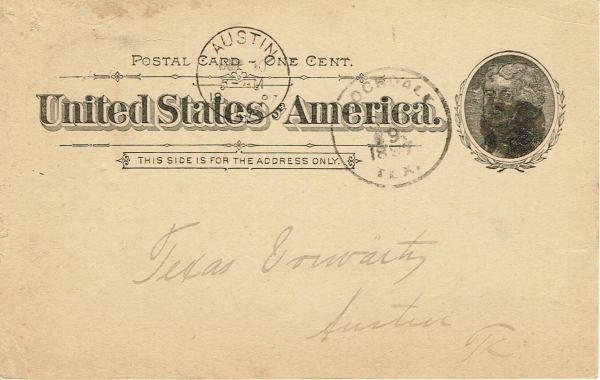 AUSTIN
POSTAL CARD - ONE CENT.
United States of America.
THIS SIDE IS FOR THE ADDRESS ONLY.
ROCKDALE
29
TEX.
Texas Vorwärts
Austin
Tx